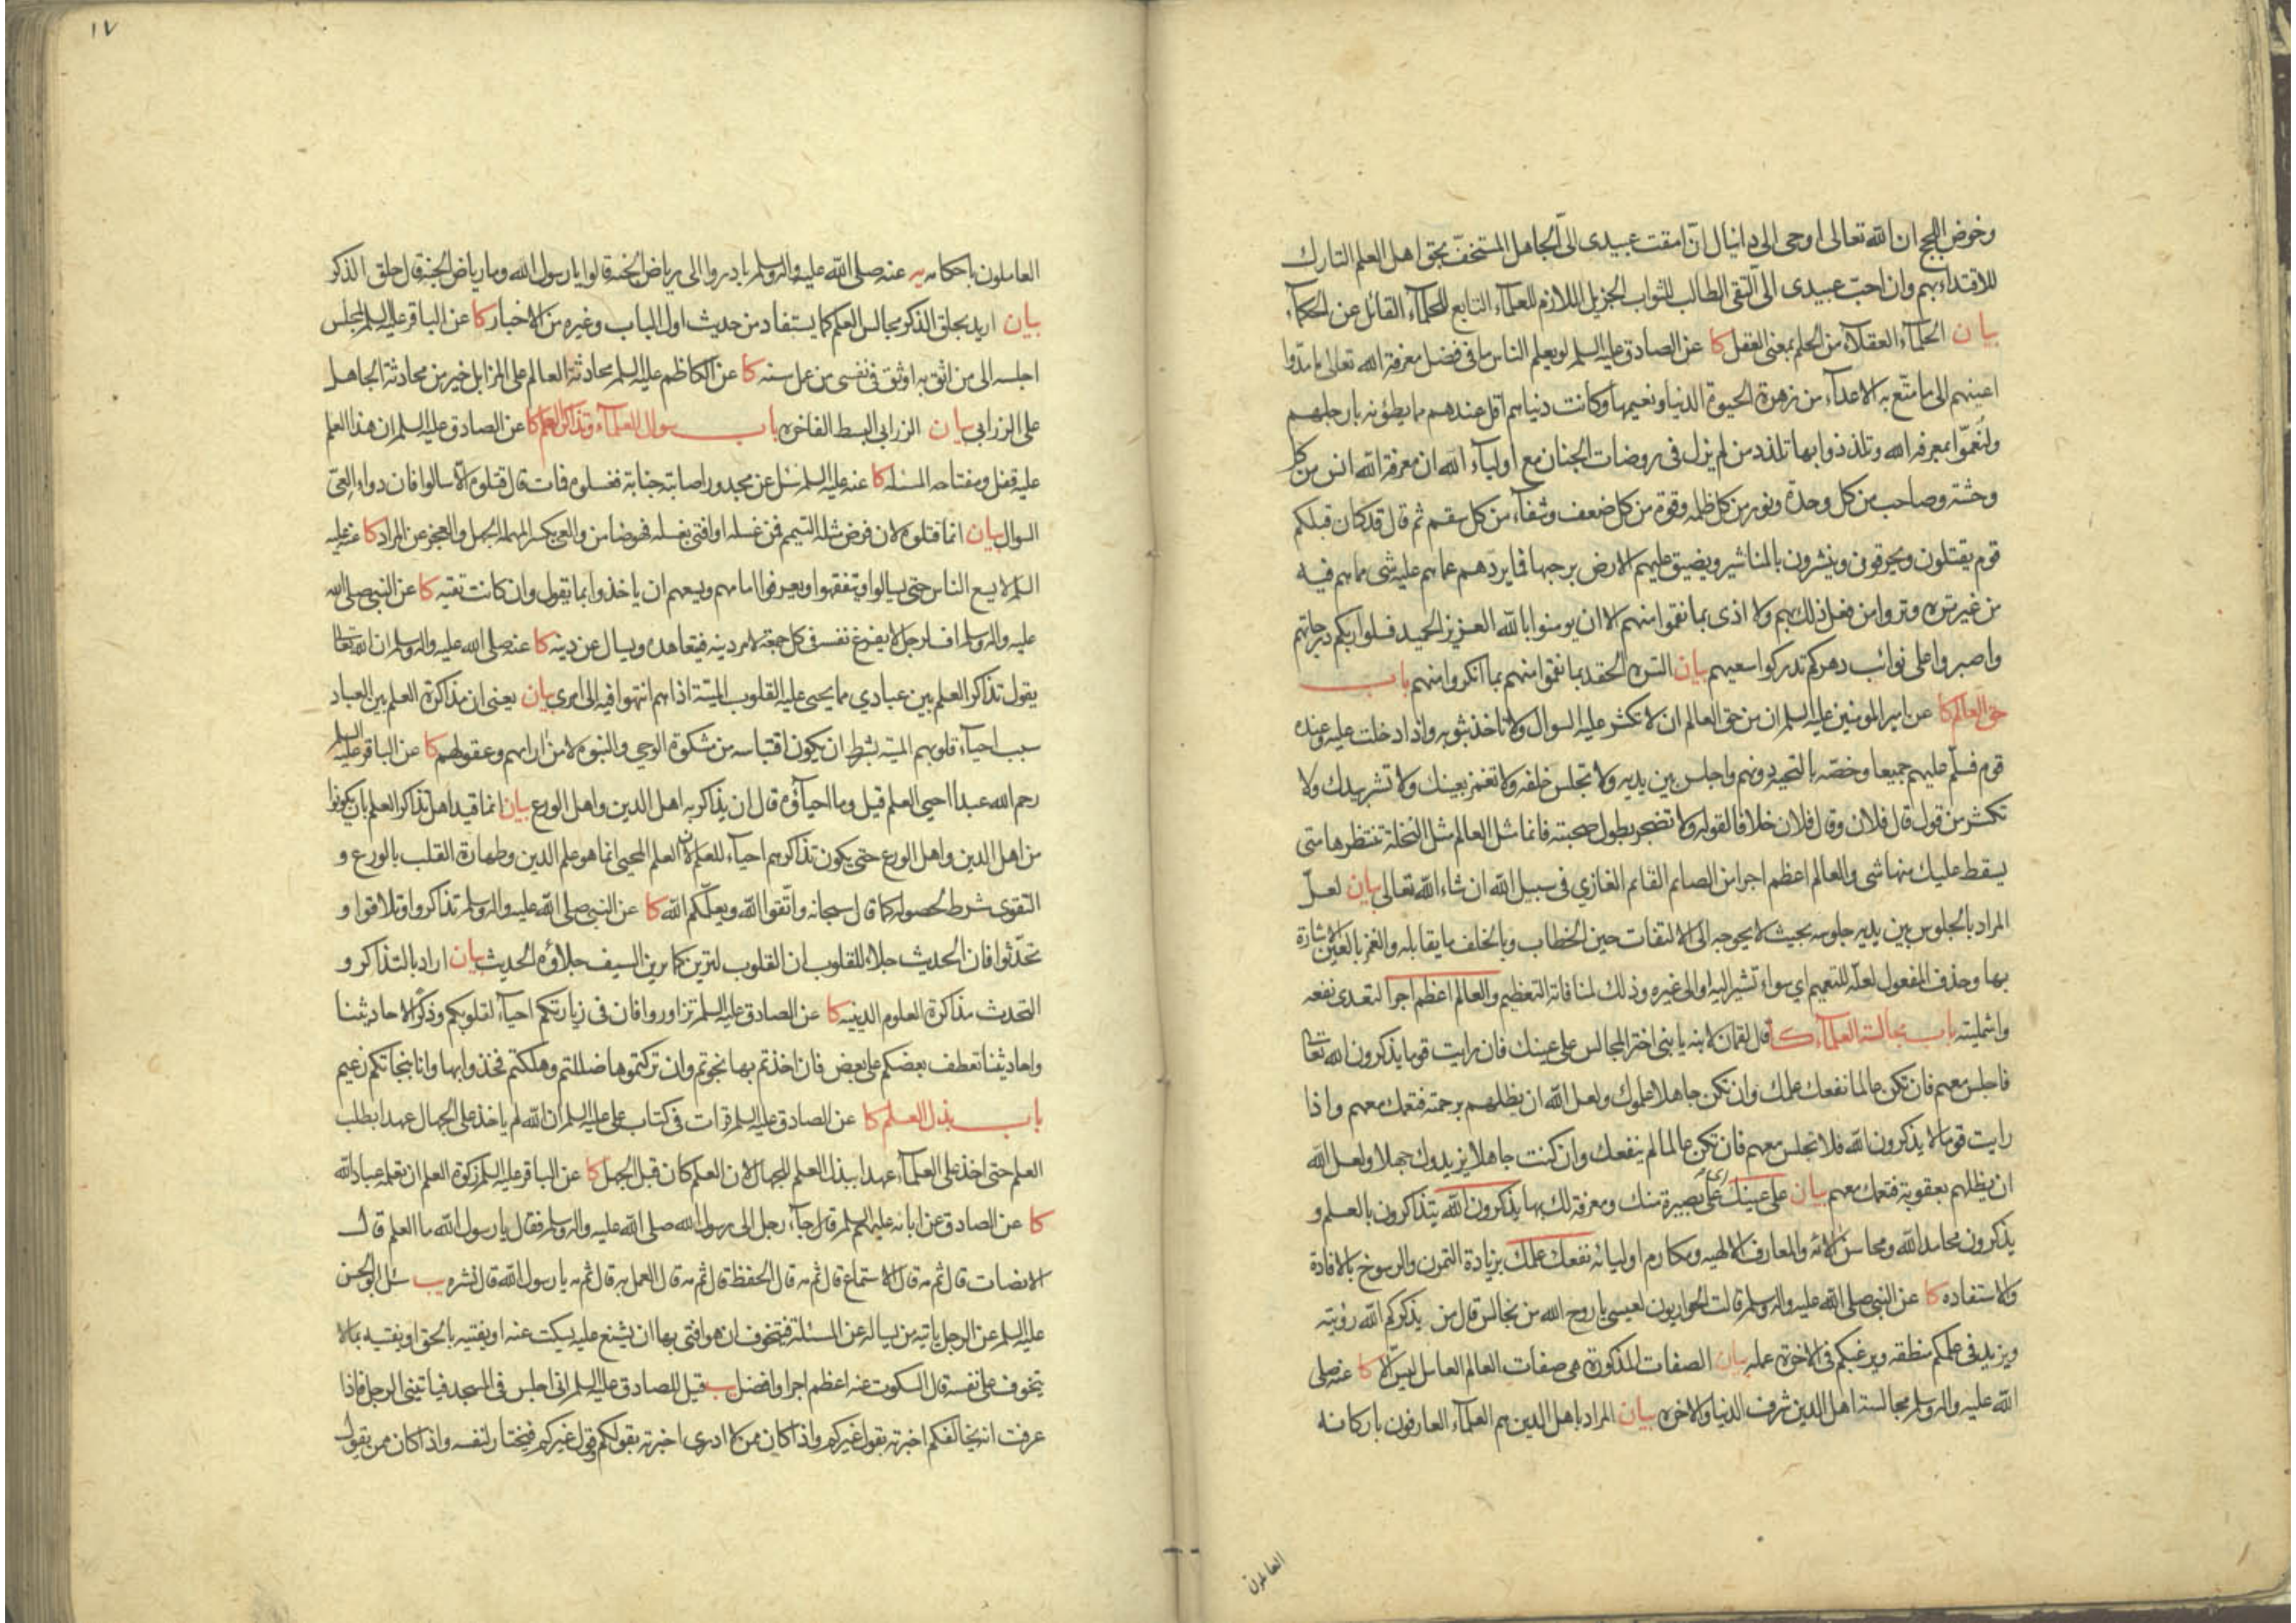 وخوض اللجج ان الله تعالى اوحى الى دانيال انّ امقت عبيدى الىّ الجاهل المستخفّ بحق اهل العلم التارك
للاقتداء بهم وان احبّ عبيدى الىّ التقى الطالب للثواب الجزيل اللازم للعلماء التابع للحلماء القائل عن الحكماء
بيان الحلماء العقلاء من الحلم بمعنى العقل كا عن الصادق عليه السلم لو يعلم الناس ما فى فضل معرفة الله تعالى ما مدّوا
اعينهم الى ما متّع به الاعداء من زهرة الحيوة الدنيا ونعيمها وكانت دنياهم اقل عندهم مما يطؤنه بارجلهم
ولنعّموا بمعرفة الله وتلذذوا بها تلذذ من لم يزل فى روضات الجنان مع اولياء الله ان معرفة الله انس من كل
وحشة وصاحب من كل وحدة ونور من كل ظلمة وقوة من كل ضعف وشفاء من كل سقم ثم قال قد كان قبلكم
قوم يقتلون ويحرقون وينشرون بالمناشير ويضيق عليهم الارض برحبها فما يردّهم عما هم عليه شى مما هم فيه
من غير ترة وتروا من فعل ذلك بهم ولا اذى بما نقموا منهم الا ان يومنوا بالله العزيز الحميد فسلوا ربكم درجاتهم
واصبروا على نوائب دهركم تدركوا سعيهم بيان الترة الحقد بما نقموا منهم بما انكروا منهم باب
حق العالم كا عن امير المومنين عليه السلم ان من حق العالم ان لا تكثر عليه السوال ولا تاخذ بثوبه واذا دخلت عليه وعنده
قوم فسلّم عليهم جميعا وخصّه بالتحية دونهم واجلس بين يديه ولا تجلس خلفه ولا تغمز بعينك ولا تشر بيدك ولا
تكثر من قول قال فلان وقال فلان خلافا لقوله ولا تضجر بطول صحبته فانما مثل العالم مثل النخلة تنتظرها متى
يسقط عليك منها شى والعالم اعظم اجرا من الصائم القائم الغازي فى سبيل الله ان شاء الله تعالى بيان لعلّ
المراد بالجلوس بين يديه جلوسه بحيث لا يحوجه الى الالتفات حين الخطاب وبالخلف ما يقابله والغمز بالعين الاشارة
بها وحذف المفعول لعلّه للتعميم اي سواء تشير اليه او الى غيره وذلك لمنافاته التعظيم والعالم اعظم اجرا لتعدى نفعه
واشمليته باب مجالسة العلماء كا قال لقمان لابنه يا بنى اختر المجالس على عينك فان رايت قوما يذكرون الله تعالى
فاجلس معهم فان تكن عالما نفعك علمك وان تكن جاهلا علموك ولعل الله ان يظلهم برحمته فتعمك معهم واذا
رايت قوما لا يذكرون الله فلا تجلس معهم فان تكن عالما لم ينفعك وان كنت جاهلا يزيدوك جهلا ولعل الله
ان يظلهم بعقوبة فتعمك معهم بيان على عينك اى على بصيرة منك ومعرفة لك بها يذكرون الله يتذاكرون بالعلم و
يذكرون محامد الله ومحاسن آلائه والمعارف الالهيه ومكارم اوليائه نفعك علمك بزيادة التمرن والرسوخ بالافادة
والاستفاده كا عن النبى صلى الله عليه واله وسلم قالت الحواريون لعيسى يا روح الله من نجالس قال من يذكركم الله رؤيته
ويزيد فى علمكم منطقه ويرغبكم فى الاخرة عمله بيان الصفات المذكورة هى صفات العالم العامل ليس الا كا عنه صلى
الله عليه واله وسلم مجالسة اهل الدين شرف الدنيا والاخرة بيان المراد باهل الدين هم العلماء العارفون باركانه
العاملون
١٧
العاملون باحكامه يه عنه صلى الله عليه واله وسلم بادروا الى رياض الجنة قالوا يا رسول الله وما رياض الجنة قال حلق الذكر
بيان اريد بحلق الذكر مجالس العلم كما يستفاد من حديث اول الباب وغيره من الاخبار كا عن الباقر عليه السلم لمجلس
اجلسه الى من اثق به اوثق فى نفسى من عمل سنه كا عن الكاظم عليه السلم محادثة العالم على المزابل خير من محادثة الجاهل
على الزرابي بيان الزرابي البسط الفاخره باب سوال العلماء وتذاكر العلم كا عن الصادق عليه السلم ان هذا العلم
عليه قفل ومفتاحه المسئله كا عنه عليه السلم سئل عن مجدور اصابته جنابة فغسلوه فمات قال قتلوه الّا سالوا فان دواء العىّ
السوال بيان انما قتلوه لان فرض مثله التيمم فمن غسله او افتى بغسله فهو ضامن والعى بكسر المهملة الجهل والعجز عن المراد كا عنه عليه
السلم لا يسع الناس حتى يسالوا ويتفقهوا ويعرفوا امامهم ويسعهم ان ياخذوا بما يقول وان كانت تقيه كا عن النبى صلى الله
عليه واله وسلم اف لرجل لا يفرغ نفسه فى كل جمعة لامر دينه فيتعاهده ويسال عن دينه كا عنه صلى الله عليه واله وسلم ان الله تعالى
يقول تذاكر العلم بين عبادي مما يحيى عليه القلوب الميتة اذا هم انتهوا فيه الى امرى بيان يعنى ان مذاكرة العلم بين العباد
سبب احياء قلوبهم الميتة بشرط ان يكون اقتباسه من مشكوة الوحى والنبوه لا من آرائهم وعقولهم كا عن الباقر عليه السلم
رحم الله عبدا احيى العلم قيل وما احياؤه قال ان يذاكر به اهل الدين واهل الورع بيان انما قيد اهل تذاكر العلم بان يكونوا
من اهل الدين واهل الورع حتى يكون تذاكرهم احياء للعلم لان العلم المحيى انما هو علم الدين وطهارة القلب بالورع و
التقوى شرط لحصوله كما قال سبحانه واتّقوا الله ويعلّمكم الله كا عن النبى صلى الله عليه واله وسلم تذاكروا وتلاقوا و
تحدّثوا فان الحديث جلاء للقلوب ان القلوب لترين كما يرين السيف جلاؤه الحديث بيان اراد بالتذاكر و
التحدث مذاكرة العلوم الدينيه كا عن الصادق عليه السلم تزاوروا فان فى زيارتكم احياء لقلوبكم وذكرا لاحاديثنا
واحاديثنا تعطف بعضكم على بعض فان اخذتم بها نجوتم وان تركتموها ضللتم وهلكتم فخذوا بها وانا بنجاتكم زعيم
باب بذل العلم كا عن الصادق عليه السلم قرات فى كتاب على عليه السلم ان الله لم ياخذ على الجهال عهدا بطلب
العلم حتى اخذ على العلماء عهدا ببذل العلم للجهال لان العلم كان قبل الجهل كا عن الباقر عليه السلم زكوة العلم ان تعلمه عباد الله
كا عن الصادق عن ابائه عليهم السلم قال جاء رجل الى رسول الله صلى الله عليه واله وسلم فقال يا رسول الله ما العلم قال
الانصات قال ثم مه قال الاستماع قال ثم مه قال الحفظ قال ثم مه قال العمل به قال ثم مه يا رسول الله قال نشره يب سئل ابو الحسن
عليه السلم عن الرجل ياتيه من يساله عن المسئلة فيتخوف ان هو افتى بها ان يشنع عليه فيسكت عنه او يفتيه بالحق او يفتيه بما لا
يتخوف على نفسه قال السكوت عنه اعظم اجرا وافضل يب قيل للصادق عليه السلم انى اجلس فى المسجد فياتينى الرجل فاذا
عرفت انه يخالفكم اخبرته بقول غيركم واذا كان ممن لا ادرى اخبرته بقولكم وقول غيركم فيختار لنفسه واذا كان ممن يقول